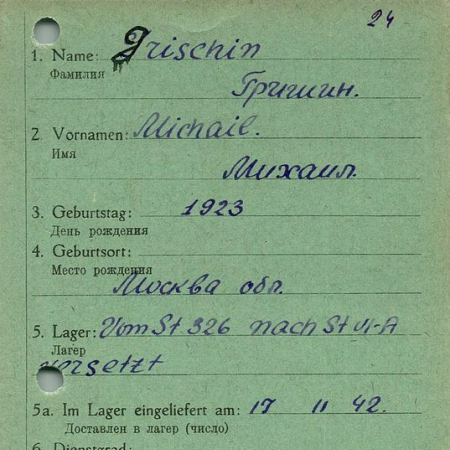 24
1. Name: Grischin
Фамилия
Гришин.
2. Vornamen: Michail.
Имя
Михаил.
3. Geburtstag: 1923
День рождения
4. Geburtsort:
Место рождения
Москва обл.
5. Lager: Vom St 326 nach St VI-A
Лагер
versetzt
5a. Im Lager eingeliefert am: 17 11 42.
Доставлен в лагер (число)
6. Dienstgrad: